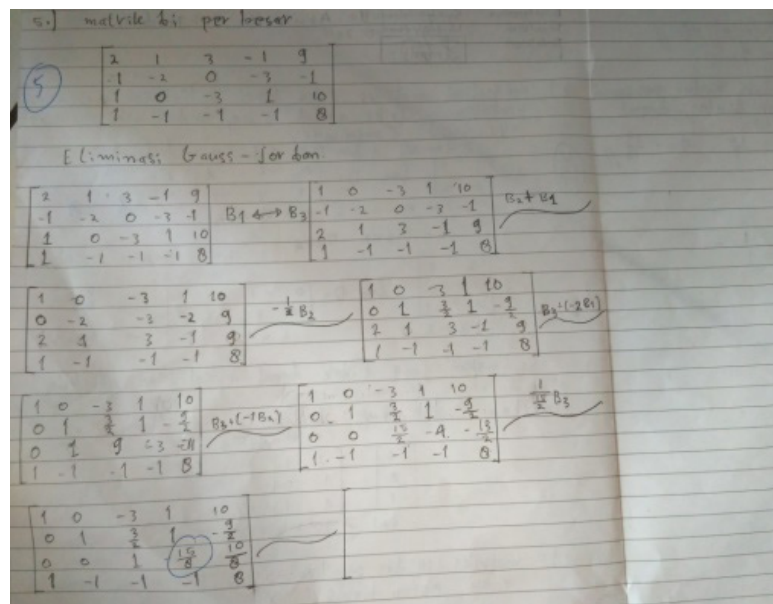 5.] matriks bi per besar
2 1 3 -1 9
-1 -2 0 -3 -1
1 0 -3 1 10
1 -1 -1 -1 8
5
Eliminasi Gauss-Jordan
2 1 3 -1 9
-1 -2 0 -3 -1
1 0 -3 1 10
1 -1 -1 -1 8
B1 ↔ B3
1 0 -3 1 10
-1 -2 0 -3 -1
2 1 3 -1 9
1 -1 -1 -1 8
B2 + B1
1 0 -3 1 10
0 -2 -3 -2 9
2 1 3 -1 9
1 -1 -1 -1 8
-1/2 B2
1 0 -3 1 10
0 1 3/2 1 -9/2
2 1 3 -1 9
1 -1 -1 -1 8
B3+(-2B1)
1 0 -3 1 10
0 1 3/2 1 -9/2
0 1 9 -3 -11
1 -1 -1 -1 8
B3+(-1B2)
1 0 -3 1 10
0 1 3/2 1 -9/2
0 0 15/2 -4 -13/2
1 -1 -1 -1 8
1/15/2 B3
1 0 -3 1 10
0 1 3/2 1 -9/2
0 0 1 15/8 10/8
1 -1 -1 -1 8